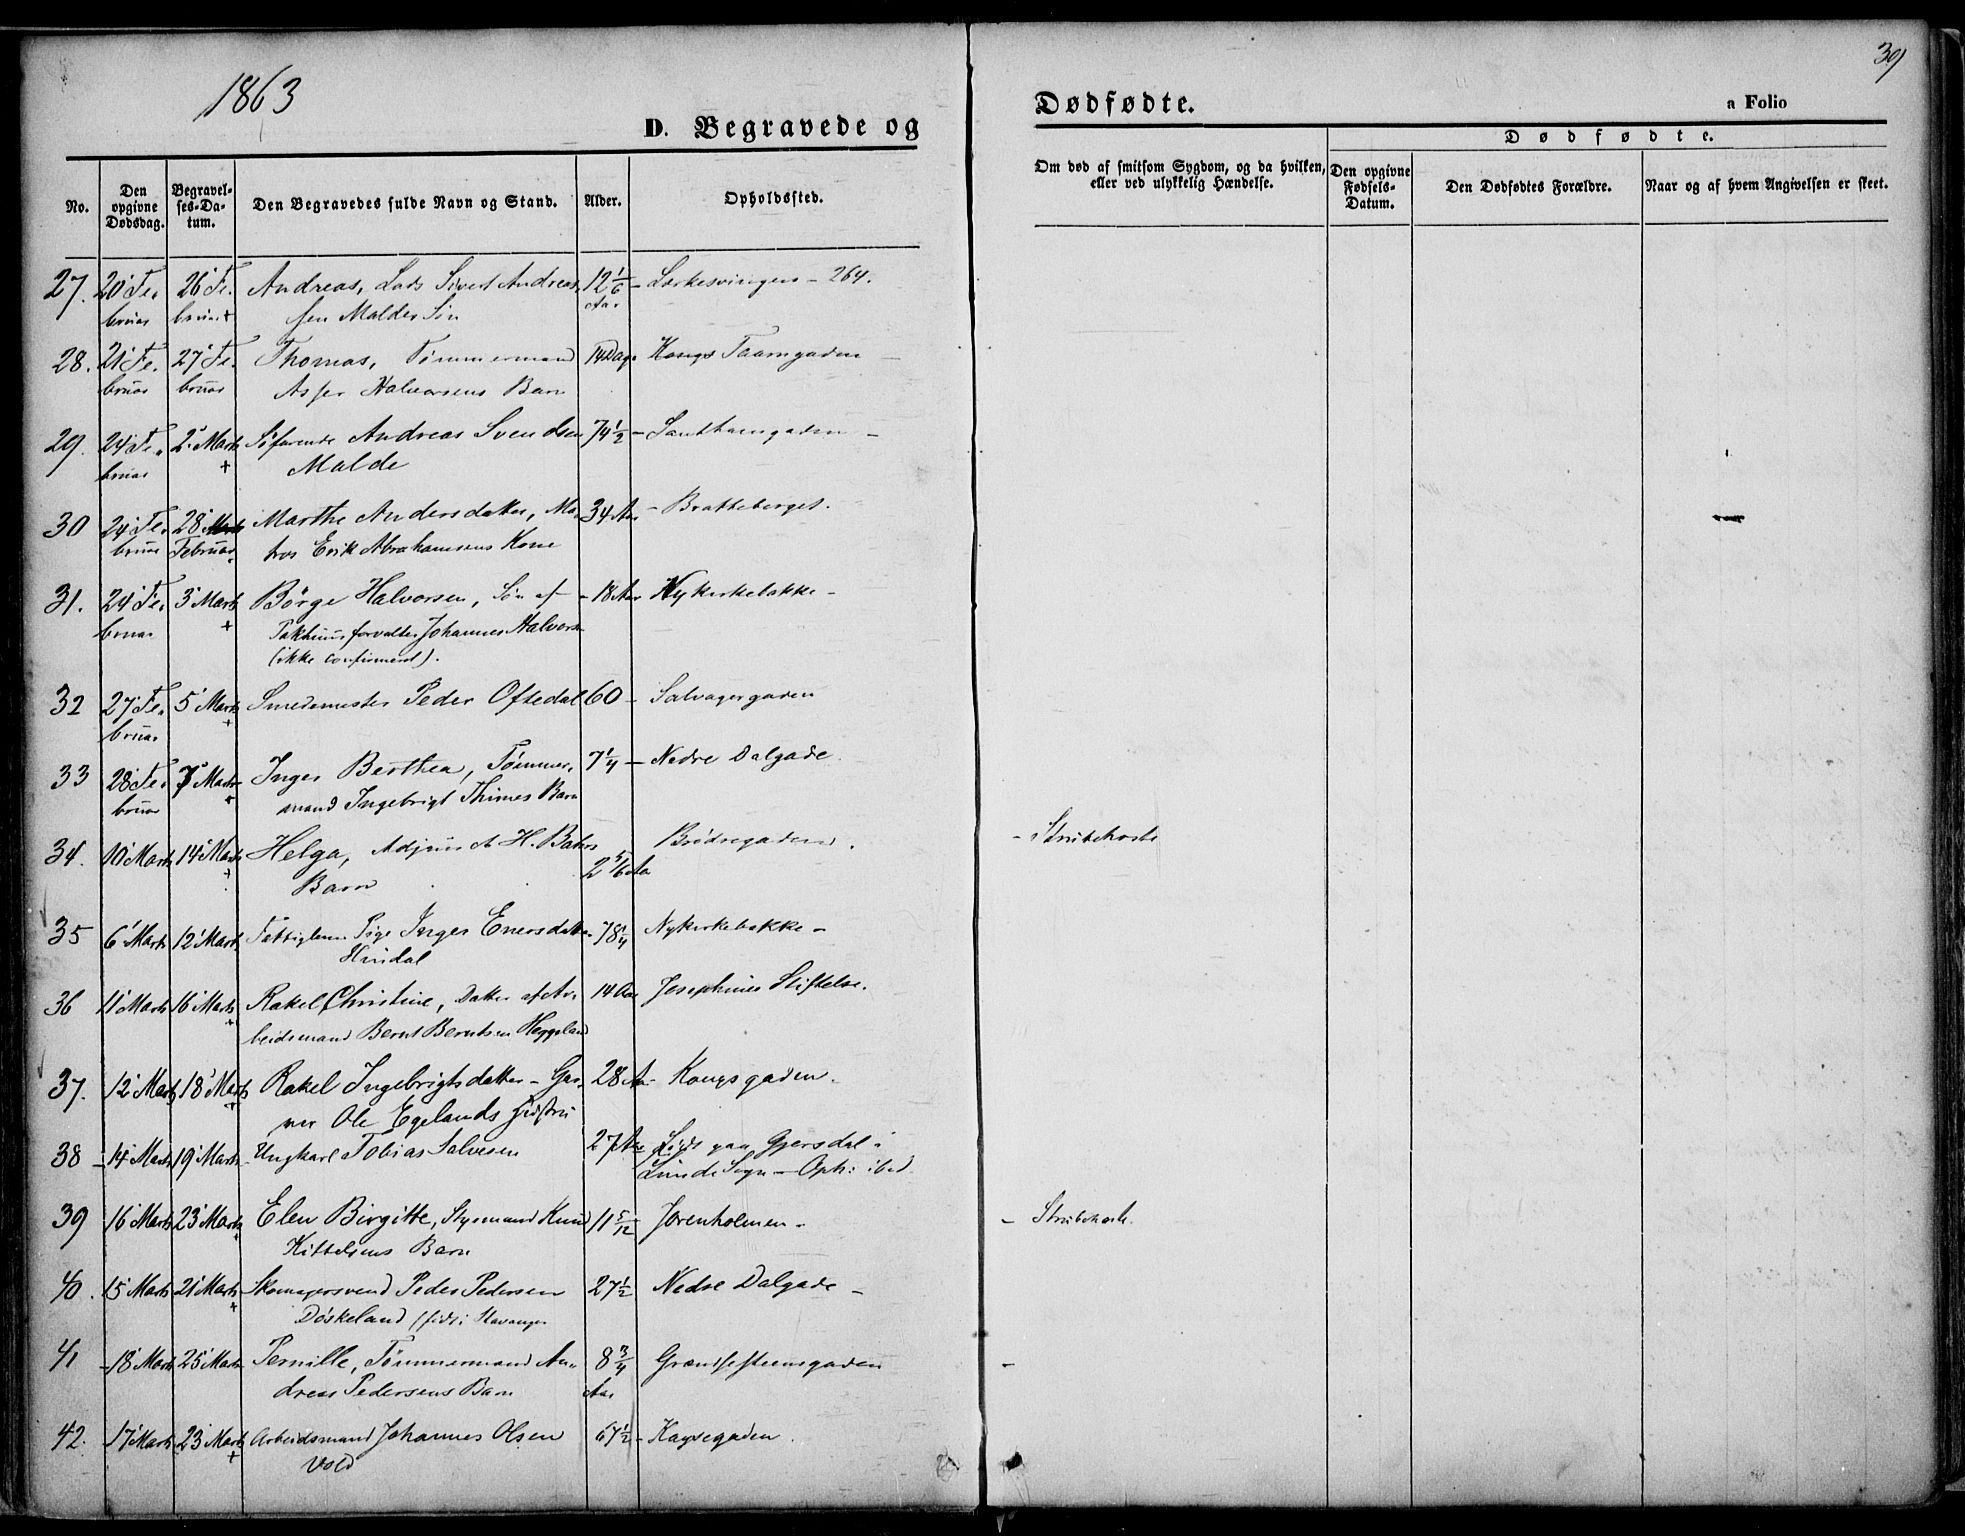 1863
39
D. Begravede og
Dødfødte.
a Folio
No.
Den opgivne Dødsdag.
Begravelses-Datum.
Den Begravedes fulde Navn og Stand.
Alder.
Opholdssted.
Om død af smitsom Sygdom, og da hvilken, eller ved ulykkelig Hændelse.
Dødfødte.
Den opgivne Fødsels-Datum.
Den Dødfødtes Forældre.
Naar og af hvem Angivelsen er skeet.
27. 20' Fe. 26' Fe. Andreas, Lods Sivert Andreas 12 1/6 - Lerkesvingen - 264.
bruar bruar + sen Maldes Søn Aar
28. 21' Fe. 27' Fe. Thomas, Tømmermand 14 Dage Kongs Taarngaden -
bruar bruar Asser Halvorsens Barn
29. 24' Fe. 2' Marts Søfarende Andreas Svendsen 74 1/2 -
bruar + Malde
30 24' Fe. 28' Marthe Andersdatter, Ma 34 Aar - Bratteberget.
bruar Februar tros Erik Abrahamsens Kone
31. 24' Fe. 3' Marts Børge Halvorsen, Søn af - 18 Aar Nykirkebakke -
bruar + Pakhuusforvalter Johannes Halvorsen
(ikke confirmeret).
32 27' Fe. 5' Marts Smedemester Peder Oftedal 60 - Salvagergaden
bruar +
33 28' Fe. 7' Marts Inger Berthea, Tømmer 7 1/4 - Nedre Dalgade.
bruar + mand Ingebrigt Thimes Barn
34. 10' Marts 14' Marts Helga, Adjunct H. Bahrs 2 5/6 Aar Brødregaden. - Strubehoste
+ Barn
35 6' Marts 12' Marts Fattiglem Pige Inger Enersdatter 78 1/4 Nykirkebakke -
Hindal
36 11' Marts 16' Marts Rakel Christine, Datter af Ar 14 Aar Josephines Stiftelse.
+ beidsmand Bernt Berntsen Heggeland
37. 12' Marts 18' Marts Rakel Ingebrigtsdatter - Gar 28 Aar - Kongsgaden.
+ ver Ole Egelands Hustru
38 - 14' Marts 19' Marts - Ungkarl Tobias Salvesen 27 Aar Født paa Gjersdal i
Lunde Sogn - Oph: ibid
39 16' Marts 23' Marts Elen Birgitte, Styrmand Knud 11 5/12 Jorenholmen - - Strubehoste.
+ Kittelsens Barn
40. 15' Marts 21' Marts Skomagersvend Peder Pedersen 27 1/2 Nedre Dalgade -
+ Døskeland (født i Stavanger
41 - 18' Marts 25' Marts Pernille, Tømmermand An 8 3/4 -
dreas Pedersens Barn Aar
42. 17' Marts 23' Marts Arbeidsmand Johannes Olsen 67 1/2 - Kaysegaden.
+ Vold